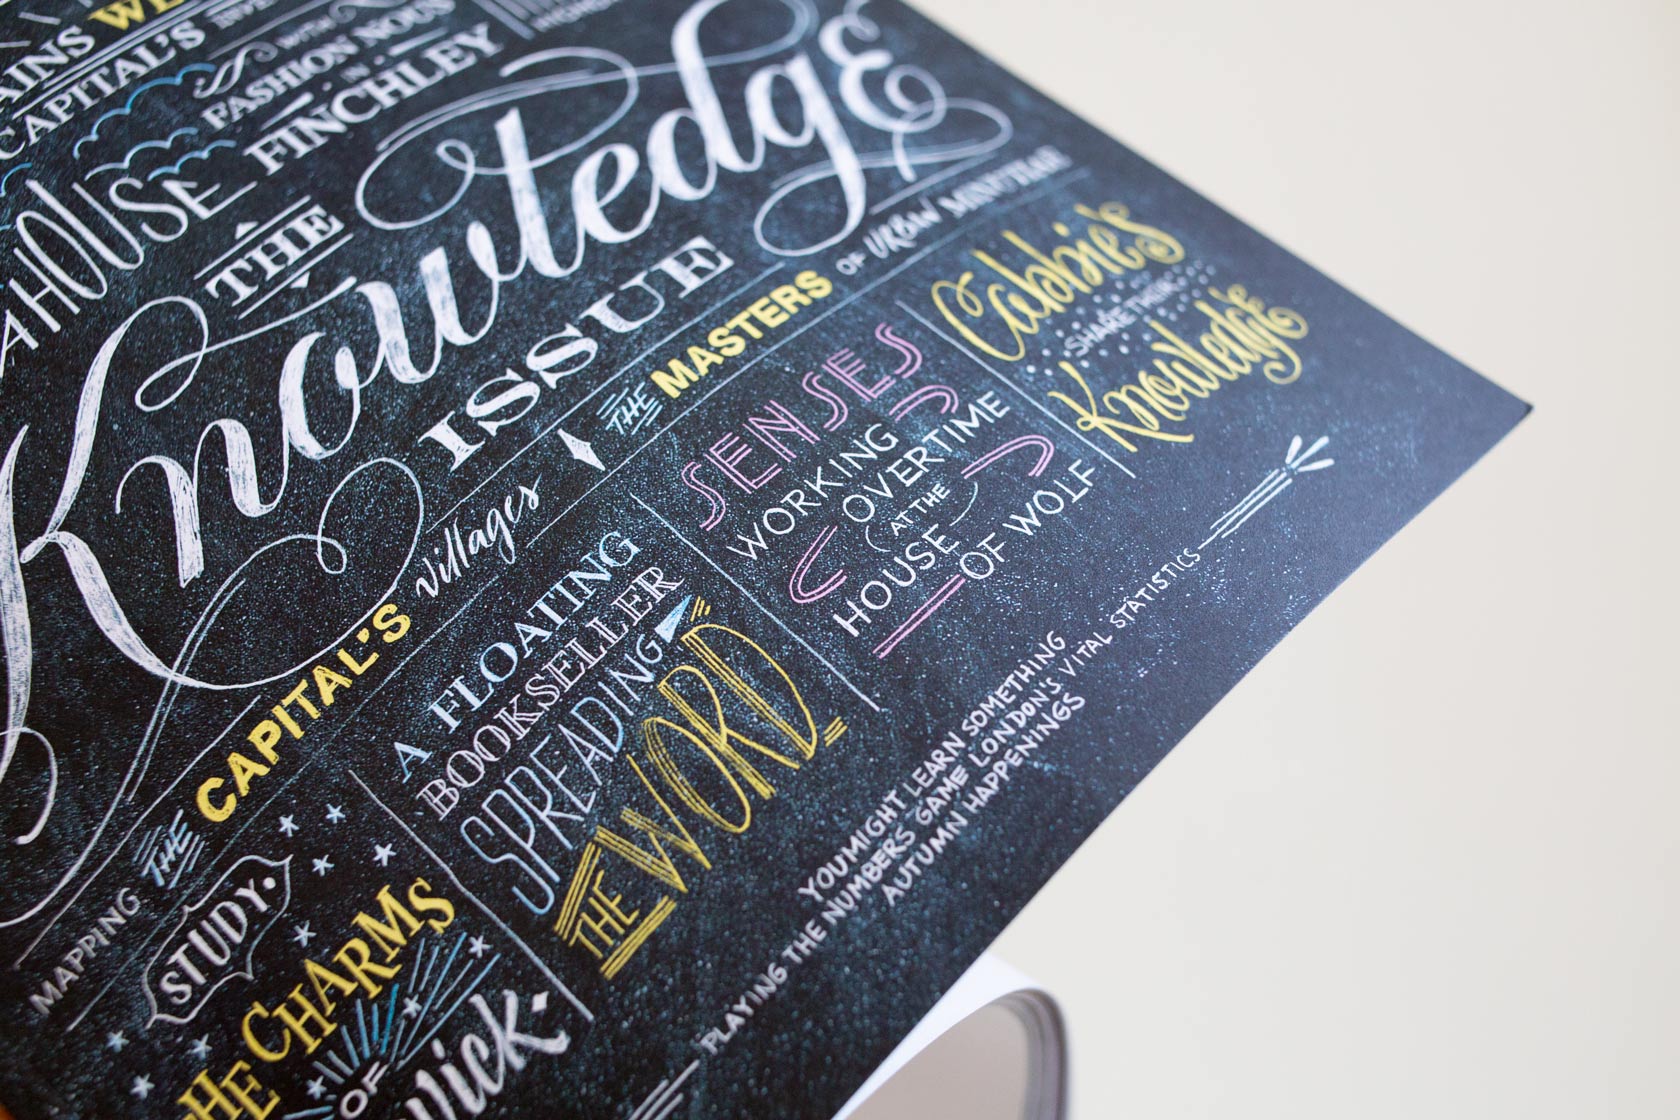 CAPITAL'S
WITH
FASHION NOUS
IN
FINCHLEY
THE
Knowledge
ISSUE
MAPPING THE CAPITAL'S villages
THE MASTERS OF URBAN MINUTIAE
STUDY.
THE CHARMS
OF
A FLOATING
BOOKSELLER
SPREADING
THE WORD
SENSES
WORKING
OVERTIME
AT THE
HOUSE
OF WOLF
Cabbie's
SHARE THEIR
Knowledge
YOU MIGHT LEARN SOMETHING
PLAYING THE NUMBERS GAME LONDON'S VITAL STATISTICS
AUTUMN HAPPENINGS